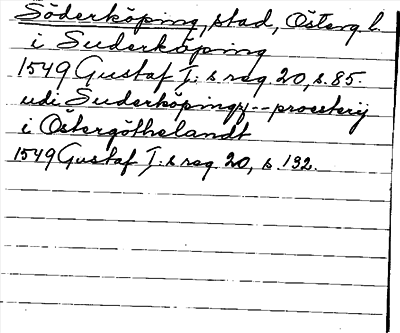 Söderköping, stad, Österg. l.
i Suderköping
1549 Gustaf I:s reg. 20, s. 85.
udi Suderköpings -- proesterij
i Östergöthelandt
1549 Gustaf I:s reg. 20, s. 132.